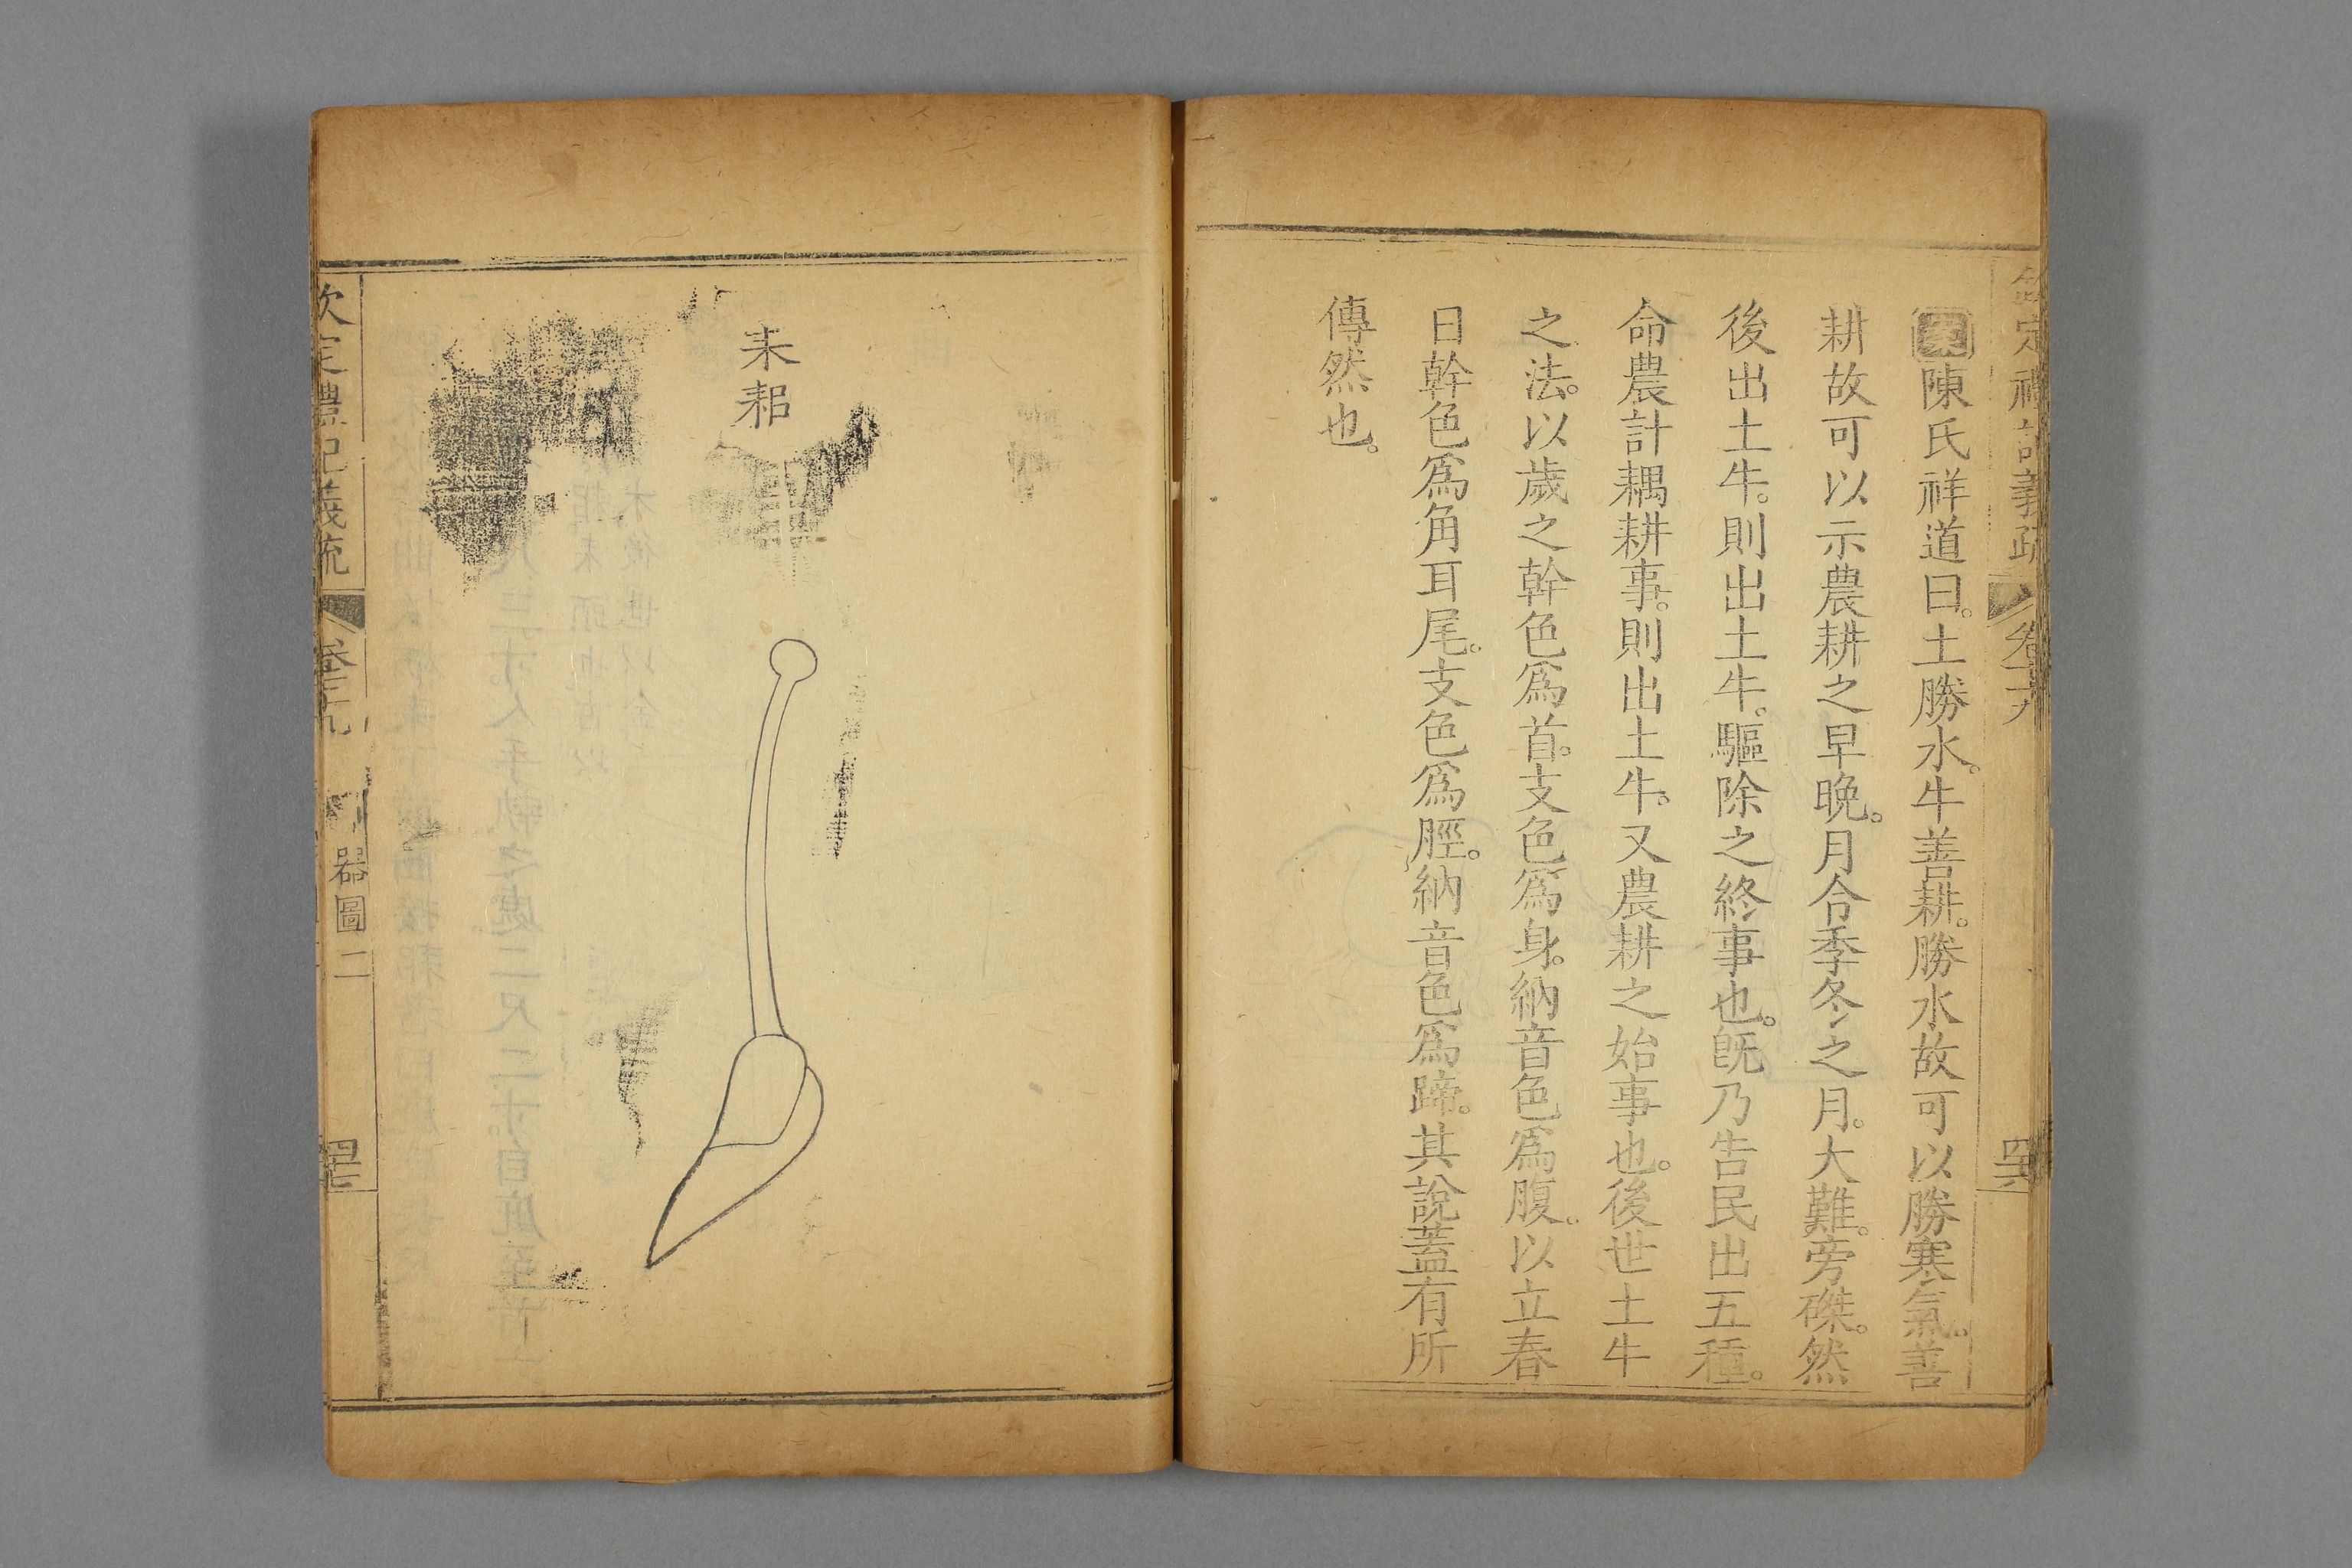 欽定禮記義疏
卷
案陳氏祥道曰。土勝水。牛善耕。勝水故可以勝寒氣。善
耕故可以示農耕之早晚。月令季冬之月。大難。旁磔。然
後出土牛。則出土牛。驅除之終事也。旣乃告民出五種。
命農計耦耕事。則出土牛。又農耕之始事也。後世土牛
之法。以歲之幹色爲首。支色爲身。納音色爲腹。以立春
日幹色爲角耳尾。支色爲脛。納音色爲蹄。其說蓋有所
傳然也。
耒耜
欽定禮記義疏
卷
器圖二